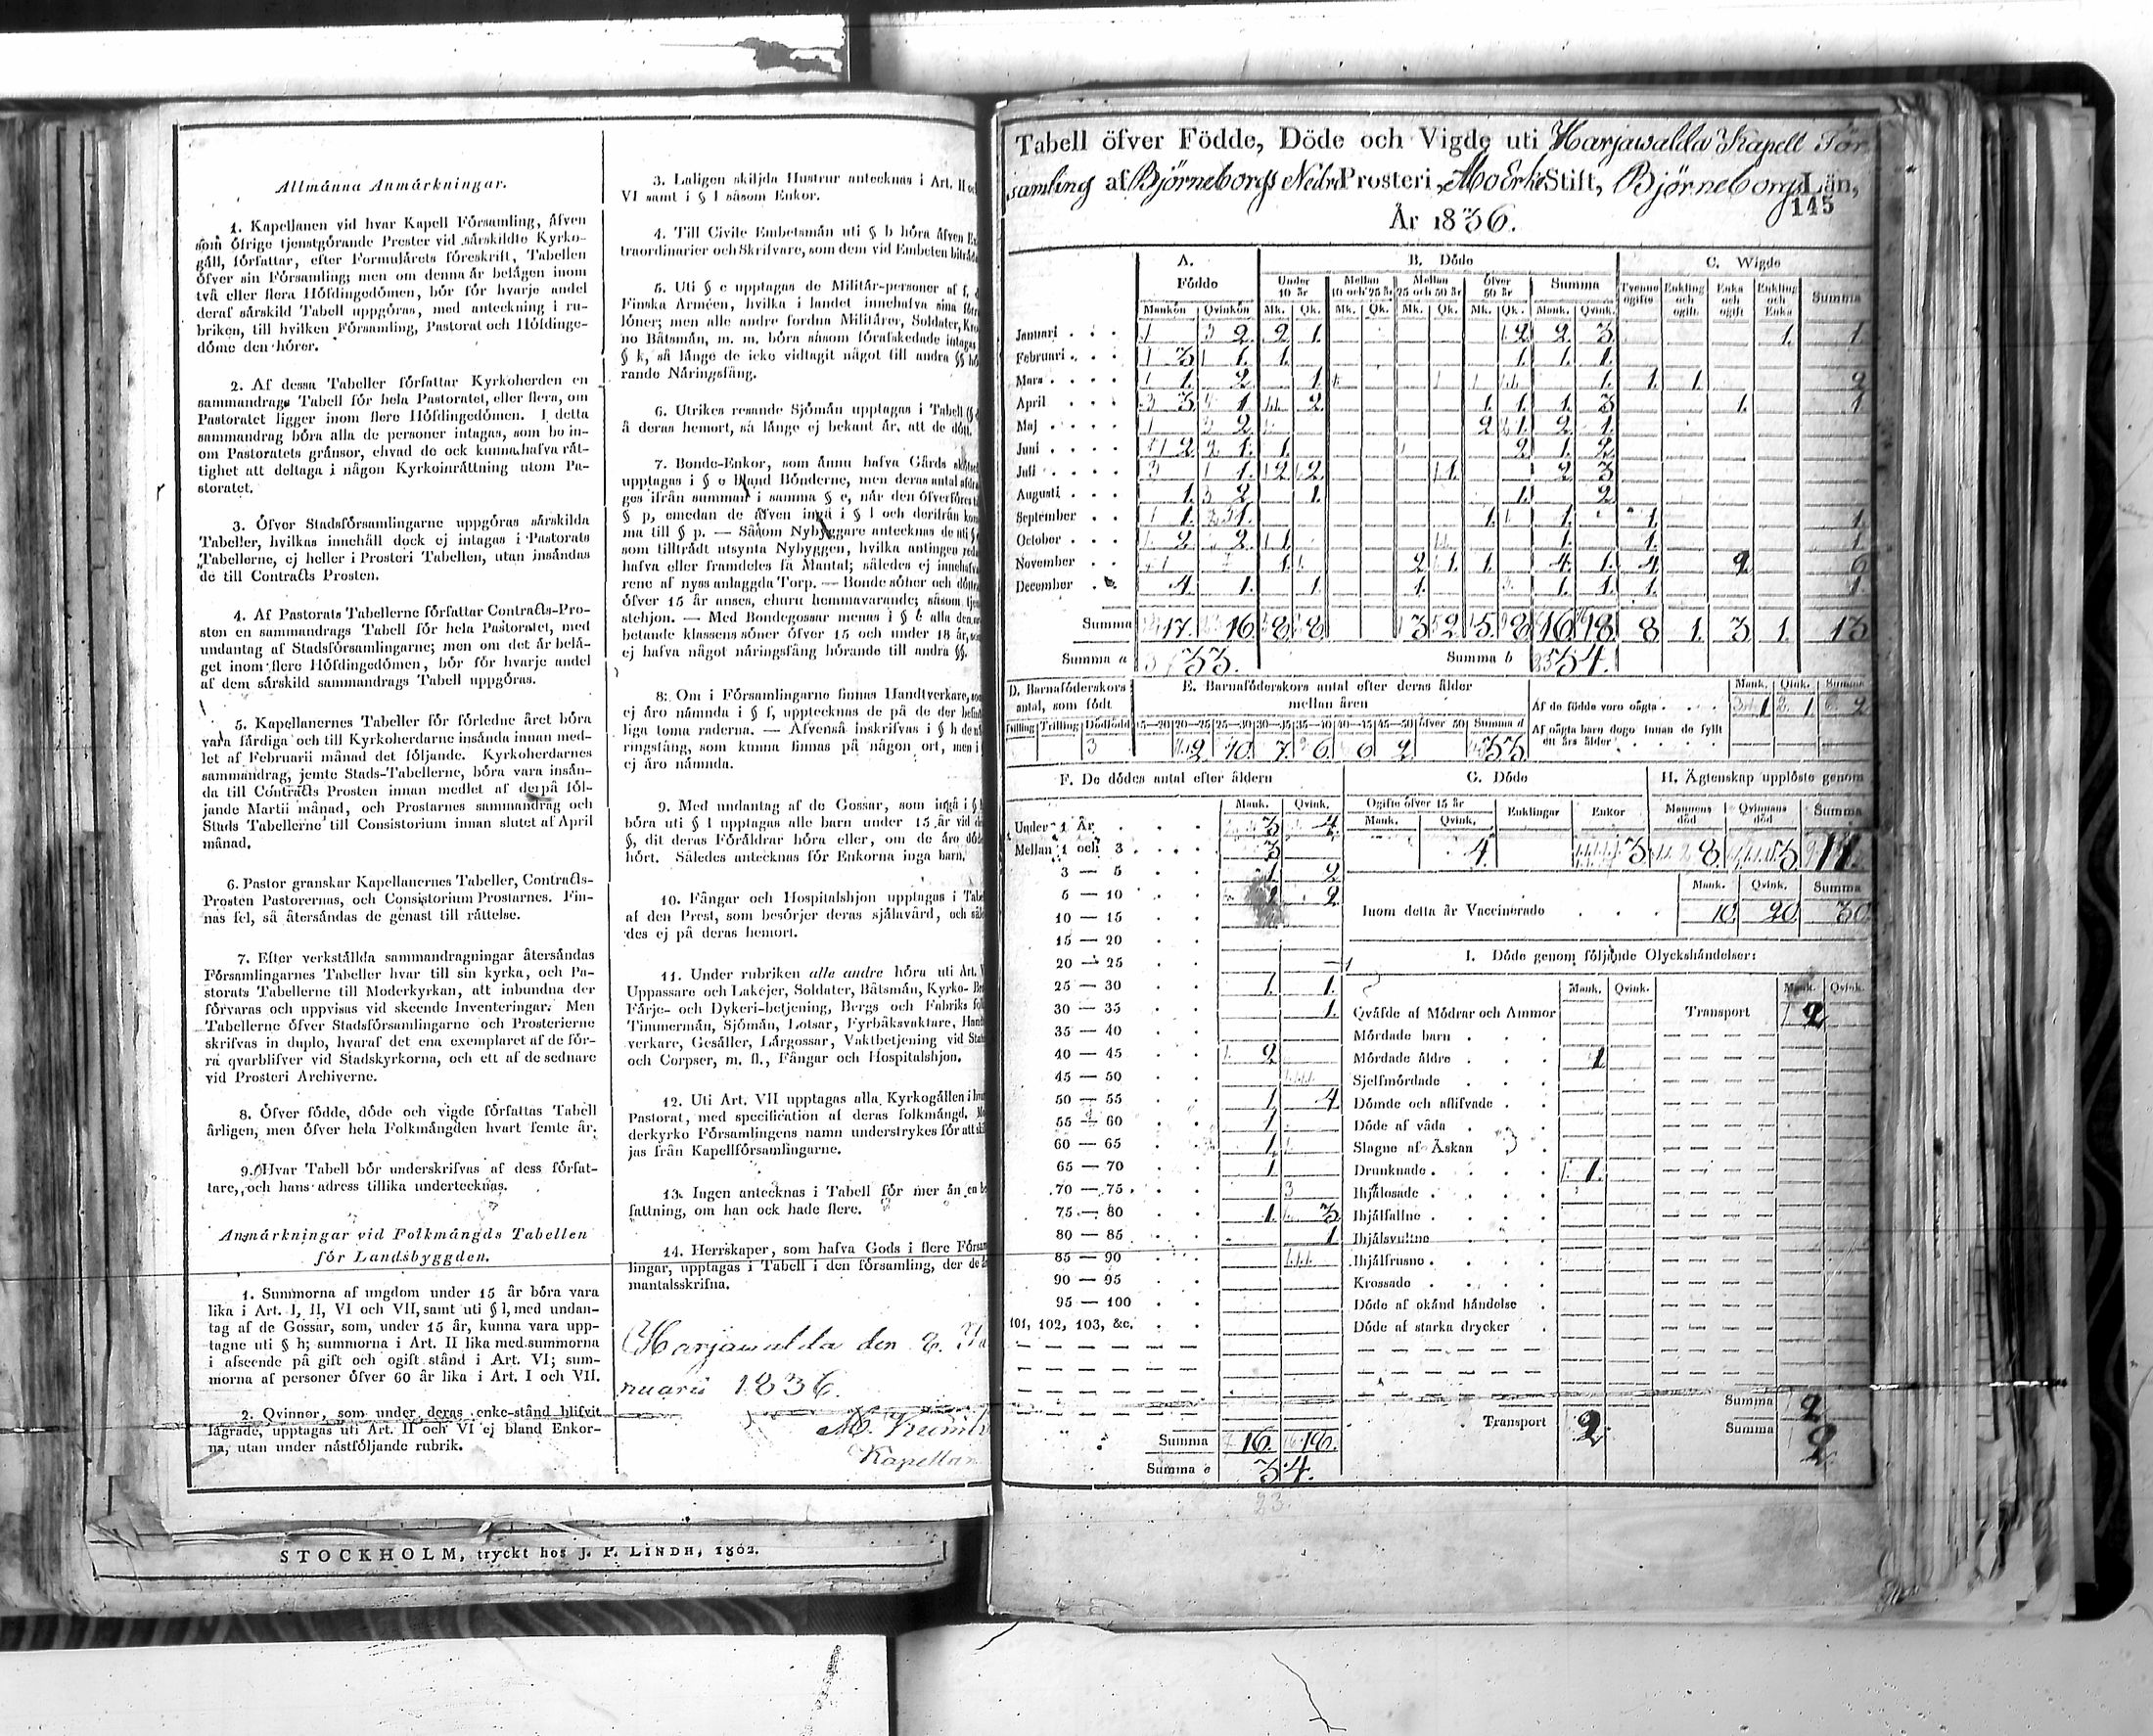 Allmänna Anmärkningar.
1. Kapellanen vid hvar Kapell Församling, äfven
som öfrige tjenstgörande Prester vid särskildte Kyrko-
gäll, författar, efter Formulärets föreskrift, Tabellen
öfver sin Församling; men om denna är belägen inom
två eller flera Höfdingedömen, bör för hvarje andel
deraf särskild Tabell uppgöras, med anteckning i ru-
briken, till hvilken Församling, Pastorat och Höfdinge-
döme den hörer.
2. Af dessa Tabeller författar Kyrkoherden en
sammandrags Tabell för hela Pastoratet, eller flera, om
Pastoratet ligger inom flere Höfdingedömen. I detta
sammandrag böra alla de personer intagas, som bo in-
om Pastoratets gränsor, ehvad de ock kunna hafva rät-
tighet att deltaga i någon Kyrkoinrättning utom Pa-
storatet.
3. Öfver Stadsförsamlingarne uppgöras särskilda
Tabeller, hvilkas innehåll dock ej intages i Pastorats
Tabellerne, ej heller i Prosteri Tabellen, utan insändas
de till Contracts Prosten.
4. Af Pastorats Tabellerne författar Contracts-Pro-
sten en sammandrags Tabell för hela Pastoratet, med
undantag af Stadsförsamlingarne; men om det är belä-
get inom flere Höfdingedömen, bör för hvarje andel
af dem särskild sammandrags Tabell uppgöras.
5. Kapellanernes Tabeller för förledne året böra
vara färdiga och till Kyrkoherdarne insända innan med-
let af Februarii månad det följande. Kyrkoherdarnes
sammandrag, jemte Stads-Tabellerne, böra vara insän-
da till Contracts Prosten innan medlet af derpå föl-
jande Martii månad, och Prostarnes sammandrag och
Stads Tabellerne till Consistorium innan slutet af April
månad.
6. Pastor granskar Kapellanernes Tabeller, Contracts-
Prosten Pastorernas, och Consistorium Prostarnes. Fin-
nas fel, så återsändas de genast till rättelse.
7. Efter verkställda sammandragningar återsändas
Församlingarnes Tabeller hvar till sin kyrka, och Pa-
storats Tabellerne till Moderkyrkan, att inbundna der
förvaras och uppvisas vid skeende Inventeringar. Men
Tabellerne öfver Stadsförsamlingarne och Prosterierne
skrifvas in duplo, hvaraf det ena exemplaret af de för-
ra qvarblifver vid Stadskyrkorna, och ett af de sednare
vid Prosteri Archiverne.
8. Öfver födde, döde och vigde författas Tabell
årligen, men öfver hela Folkmängden hvart femte år.
9. Hvar Tabell bör underskrifvas af dess förfat-
tare, och hans adress tillika undertecknas.
Anmärkningar vid Folkmängds Tabellen
för Landsbyggden.
1. Summorna af ungdom under 15 år böra vara
lika i Art. I, II, VI och VII, samt uti § l, med undan-
tag af de Gossar, som, under 15 år, kunna vara upp-
tagne uti § h; summorna i Art. II lika med summorna
i afseende på gift och ogift stånd i Art. VI; sum-
morna af personer öfver 60 år lika i Art. I och VII.
2. Qvinnor, som under deras enke-stånd blifvit
lägrade, upptagas uti Art. II och VI ej bland Enkor-
na, utan under nästföljande rubrik.
3. Laligen skiljda Hustrur antecknas i Art. II
VI samt i § l såsom Enkor.
4. Till Civile Embetsmän uti § b höra äfven
traordinarier och Skrifvare, som dem vid Embeten
5. Uti § c upptagas de Militär-personer af
Finska Arméen, hvilka i landet innehafva sina
löner; men alle andre fordna Militärer, Soldater,
no Båtsmän, m. m. böra såsom förafskedade
§ k, så länge de icke vidtagit något till andra §§
rande Näringsfång.
6. Utrikes resande Sjömän upptagas i Tabell
å deras hemort, så länge ej bekant är, att de
7. Bonde-Enkor, som ännu hafva Gårds
upptagas i § e bland Bönderne, men deras antal
ges ifrån summan i samma § e, när den öfverföres
§ p, emedan de äfven ingå i § l och derifrån
ma till § p. — Såsom Nybyggare antecknas de uti
som tillträdt utsynta Nybyggen, hvilka antingen
hafva eller framdeles få Mantal; således ej
rene af nyss anlaggda Torp. — Bonde söner och
öfver 15 år anses, ehuru hemmavarande; såsom
stehjon. — Med Bondegossar menas i § e alla
betande klassens söner öfver 15 och under 18 år,
ej hafva något näringsfång hörande till andra §§.
8. Om i Församlingarne finnas Handtverkare,
ej äro nämnda i § f, upptecknas de på de der
liga toma raderna. — Äfvenså inskrifvas i § h
ringsfång, som kunna finnas på någon ort, men i
ej äro nämnda.
9. Med undantag af de Gossar, som ingå i §
böra uti § l upptagas alle barn under 15 år vid
§, dit deras Föräldrar höra eller, om de äro
hört. Således antecknas för Enkorna inga barn.
10. Fångar och Hospitalshjon upptagas i
af den Prest, som besörjer deras själavård, och
des ej på deras hemort.
11. Under rubriken alle andre höra uti Art.
Uppassare och Lakejer, Soldater, Båtsmän, Kyrko-
Färje- och Dykeri-betjening, Bergs och Fabriks
Timmermän, Sjömän, Lotsar, Fyrbåksvaktare,
verkare, Gesäller, Lärgossar, Vaktbetjening vid
och Corpser, m. fl., Fångar och Hospitalshjon.
12. Uti Art. VII upptagas alla Kyrkogällen i
Pastorat, med specification af deras folkmängd.
derkyrko Församlingens namn understrykes för att
jas från Kapellförsamlingarne.
13. Ingen antecknas i Tabell för mer än en
fattning, om han ock hade flere.
14. Herrskaper, som hafva Gods i flere
lingar, upptagas i Tabell i den församling, der de
mantalsskrifna.
Harjawalda den 8.
nuarii 1836.
Kapellan
STOCKHOLM, tryckt hos J. P. LINDH, 1802.
Tabell öfver Födde, Döde och Vigde uti Harjawalda Kapell För
samling af Björneborgs Nedre Prosteri, Åbo Erke Stift, Björneborgs Län,
145
År 1836.
A. B. Döde C. Wigde
Födde Under 10 år Mellan 10 och 25 år Mellan 25 och 50 år Öfver 50 år Summa Tvenne ogifte Enkling och ogift Enka och ogift Enkling och Enka Summa
Mankön Qvinkön Mk. Qk. Mk. Qk. Mk. Qk. Mk. Qk. Mank. Qvink.
Januari 2 2 1 2 2 3 1 1
Februari 3 1 1 1 1 1
Mars 1 2 1 1 1 1 2
April 3 1 2 1 1 1 3 1 1
Maj 2 2 1 2 1
Juni 2 1 1 2 1 2
Juli 1 2 2 1 2 3
Augusti 1 2 1 1 2
September 1 1 1 1 1 1
October 2 2 1 1 1 1
November 1 2 1 1 4 1 4 2 6
December 4 1 1 1 1 1 1 1
Summa 17 16 8 8 3 2 5 8 16 18 8 1 3 1 13
Summa a 33. Summa b 34.
D. Barnaföderskors antal, som födt
E. Barnaföderskors antal efter deras ålder
mellan åren
Tvilling Trilling Dödfödd 15—20 20—25 25—30 30—35 35—40 40—45 45—50 öfver 50 Summa d
3 2 10 7 6 6 2 33
Mank. Qink. Summa
Af de födde voro oägta 1 1 2
Af oägta barn dogo innan de fyllt
ett års ålder
F. De dödes antal efter åldern
Mank. Qvink.
Under 1 År 3 4
Mellan 1 och 3 3
3 — 5 1 2
5 — 10 2
10 — 15
15 — 20
20 — 25
25 — 30 1 1
30 — 35 1
35 — 40
40 — 45 2
45 — 50
50 — 55 1 4
55 — 60 1
60 — 65 1
65 — 70 1
70 — 75
75 — 80 1 3
80 — 85 1
85 — 90
90 — 95
95 — 100
101, 102, 103, &c.
Summa 16. 18.
Summa e 34.
23.
G. Döde
Ogifte öfver 15 år Enklingar Enkor
Mank. Qvink.
4 3
H. Ägtenskap upplöste genom
Mannens död Qvinnans död Summa
8 3 11.
Mank. Qvink. Summa
Inom detta år Vaccinerade 10. 20. 30.
I. Döde genom följande Olyckshändelser:
Mank. Qvink. Mank. Qvink.
Qväfde af Mödrar och Ammor Transport 2
Mördade barn
Mördade äldre 1
Sjelfmördade
Dömde och aflifvade
Döde af våda
Slagne af Åskan
Drunknade 1.
Ihjälosade
Ihjälfallne
Ihjälsvultne
Ihjälfrusne
Krossade
Döde af okänd händelse
Döde af starka drycker
Summa 2
Transport 2. Summa 2